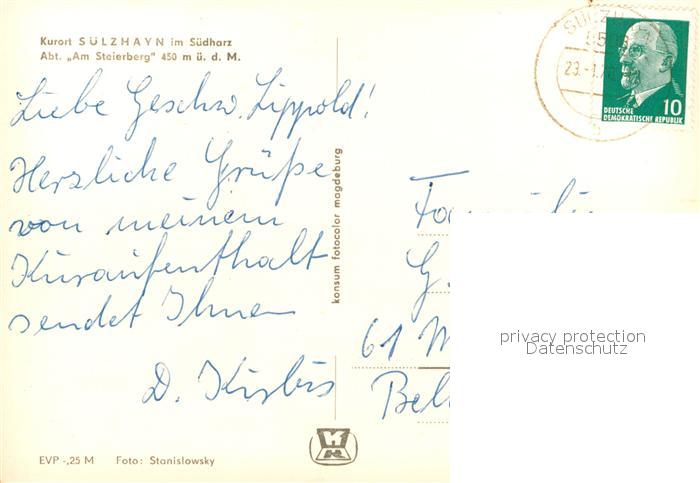 Kurort SÜLZHAYN im Südharz
Abt. „Am Steierberg" 450 m ü. d. M.
Liebe Geschw. Lippold!
Herzliche Grüße
von meinem
Kuraufenthalt
sendet Ihnen
D.
konsum fotocolor magdeburg
EVP -,25 M Foto: Stanislowsky
SÜLZHAYN
23.-1.70
10
DEUTSCHE
DEMOKRATISCHE REPUBLIK
Familie
G.
61 M
Bel
privacy protection
Datenschutz